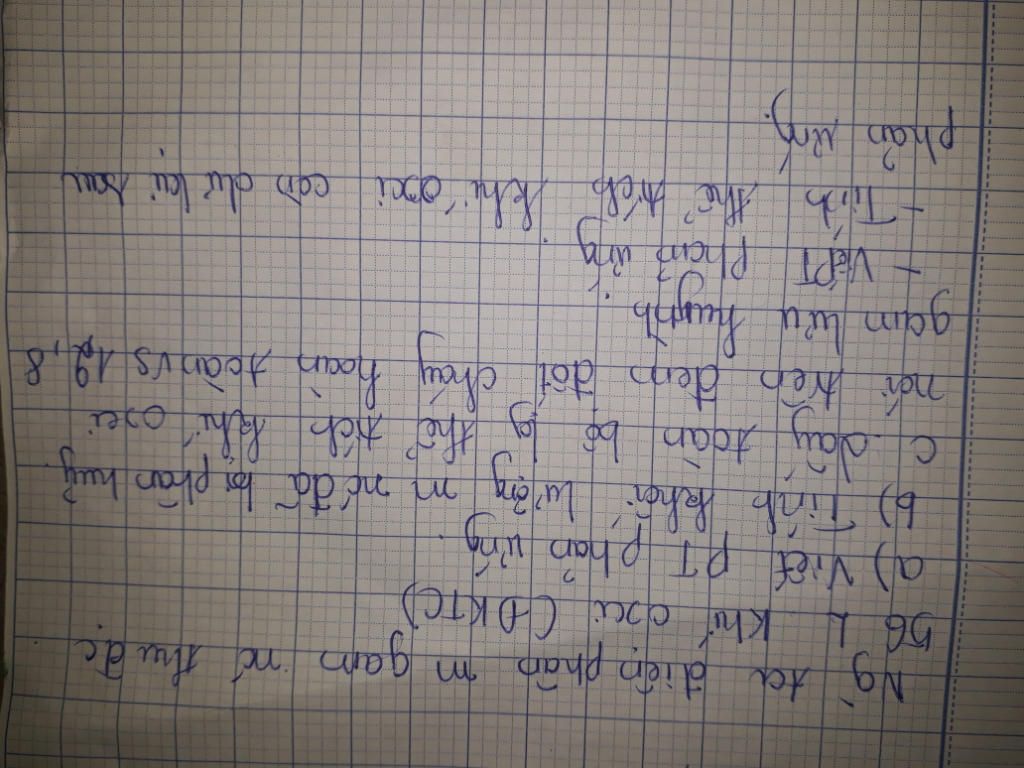 Ng ta điện phân m gam nc thu đc
56 L khí oxi (ĐKTC)
a) Viết PT phản ứng.
b) Tính khối lượng m nc đã bị phân huỷ
c. Lấy toàn bộ lg thể tích khí oxi
nói trên đem đốt cháy hoàn toàn vs 12,8
gam lưu huỳnh.
- Viết PT phản ứng.
- Tính thể tích khí oxi còn dư lại sau
phản ứng.